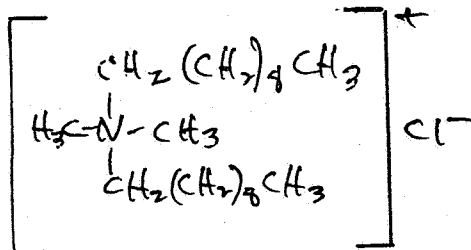 CH2(CH2)8CH3
H3C-N-CH3
CH2(CH2)8CH3
+
Cl-